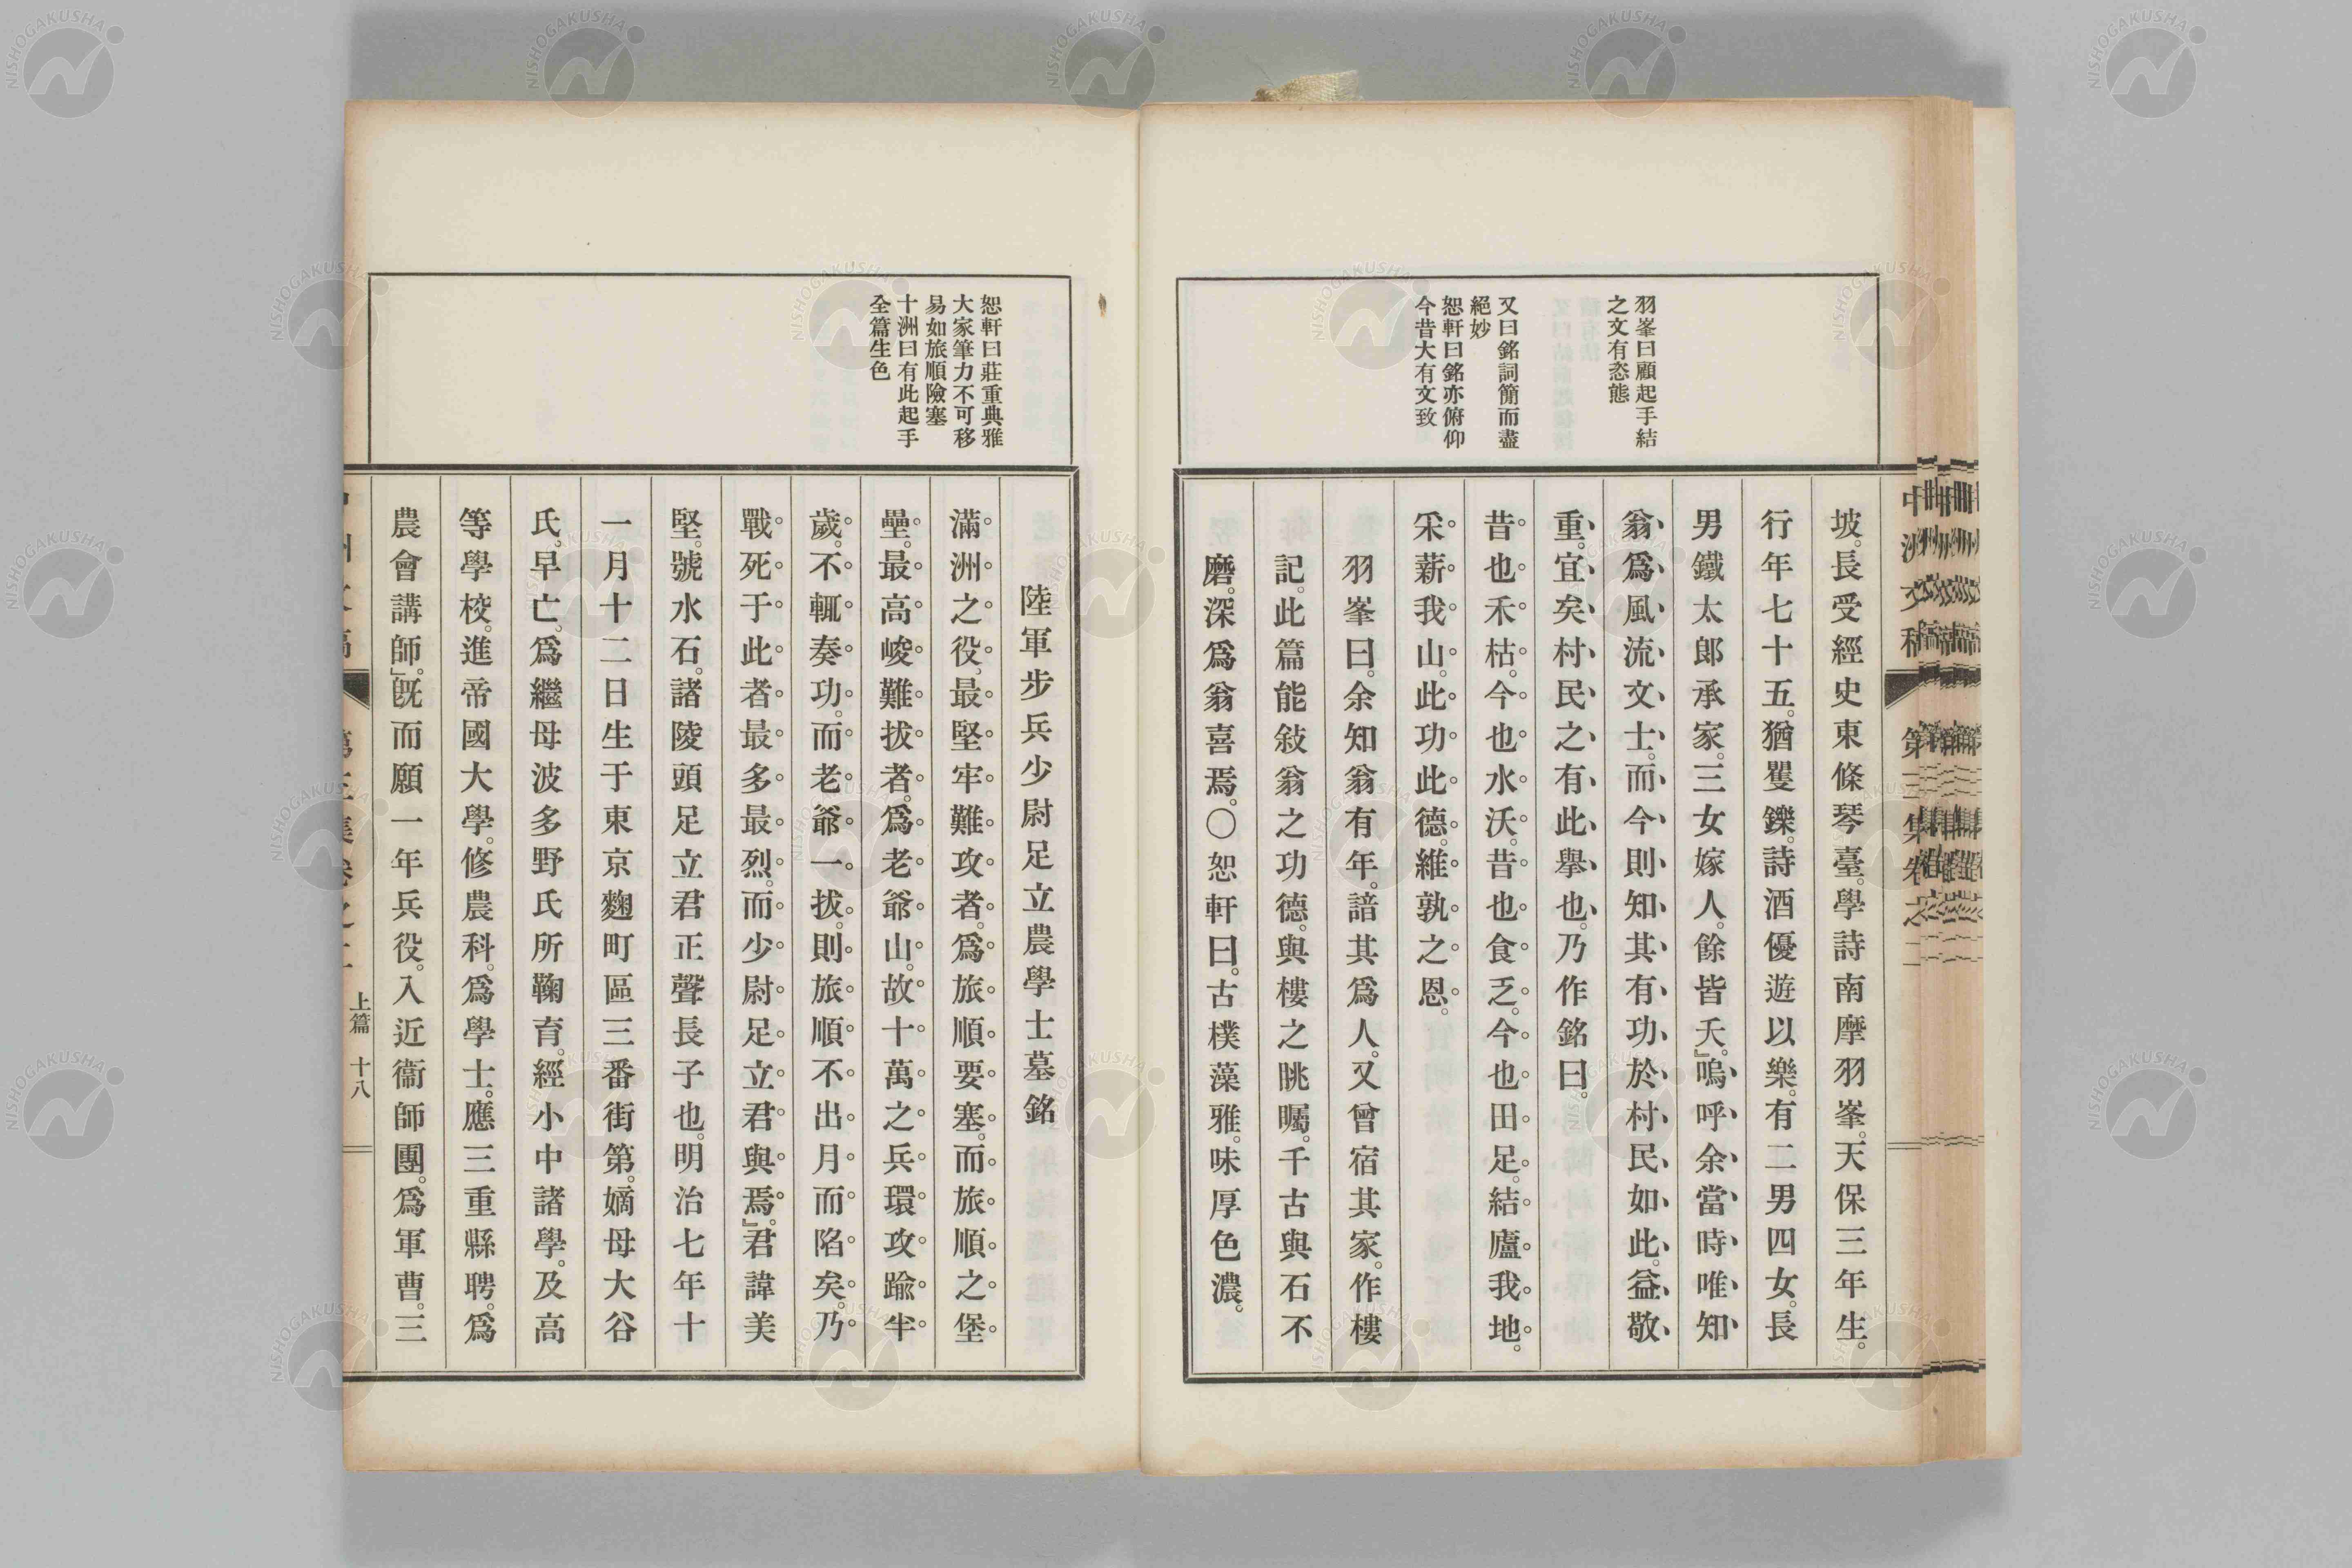 羽峯曰顧起手結
之文有恣態
又曰銘詞簡而盡
絕妙
恕軒曰銘亦俯仰
今昔大有文致
坡。長受經史東條琴臺。學詩南摩羽峯。天保三年生。
行年七十五。猶矍鑠。詩酒優遊以樂。有二男四女。長
男鐵太郎承家。三女嫁人。餘皆夭。』嗚呼余當時唯知
翁爲風流文士。而今則知其有功於村民如此。益敬
重。宜矣村民之有此擧也。乃作銘曰。
昔也禾枯。今也水沃。昔也食乏。今也田足。結廬我地。
采薪我山。此功此德。維孰之恩。
羽峯曰。余知翁有年。諳其爲人。又曾宿其家。作樓
記。此篇能敍翁之功德。與樓之眺矚。千古與石不
磨。深爲翁喜焉。〇恕軒曰。古樸藻雅。味厚色濃。
恕軒曰莊重典雅
大家筆力不可移
易如旅順險塞
十洲曰有此起手
全篇生色
陸軍步兵少尉足立農學士墓銘
滿洲之役。最堅牢難攻者。爲旅順要塞。而旅順之堡
壘。最高峻難拔者。爲老爺山。故十萬之兵環攻踰半
歲。不輒奏功。而老爺一拔。則旅順不出月而陷矣。乃
戰死于此者最多最烈。而少尉足立君與焉。』君諱美
堅。號水石。諸陵頭足立君正聲長子也。明治七年十
一月十二日生于東京麴町區三番街第。嫡母大谷
氏。早亡。爲繼母波多野氏所鞠育。經小中諸學。及高
等學校。進帝國大學。修農科。爲學士。應三重縣聘。爲
農會講師。』既而願一年兵役。入近衞師團。爲軍曹。三
上篇 十八